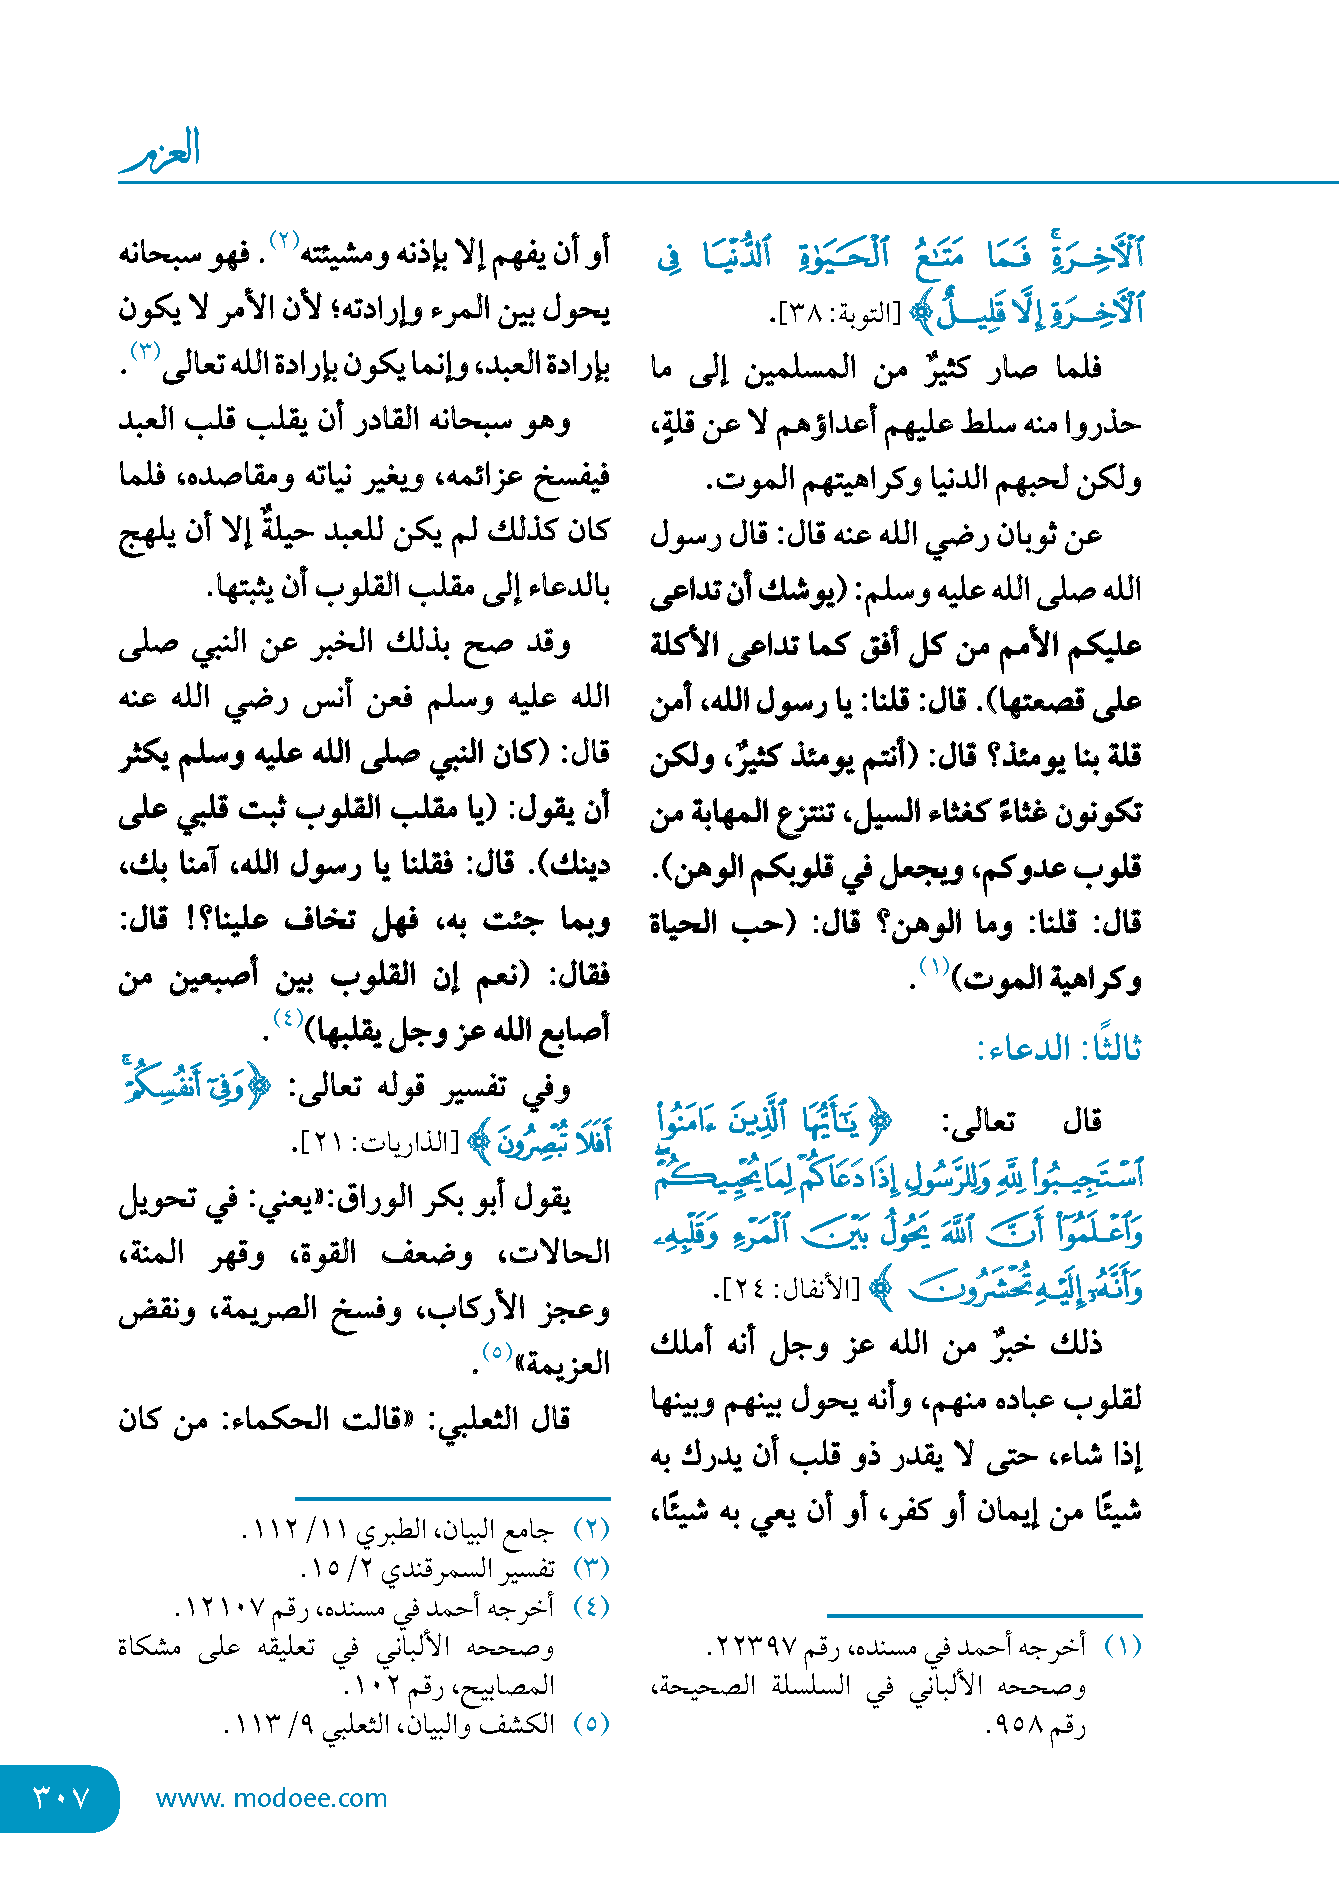 العزم
ٱلْأَخِرَةِ ۚ فَمَا مَتَـٰعُ ٱلْحَيَوٰةِ ٱلدُّنْيَا فِى
ٱلْأَخِرَةِ إِلَّا قَلِيلٌ﴾ [التوبة: ٣٨].
فلما صار كثيرٌ من المسلمين إلى ما
حذروا منه سلط عليهم أعداؤهم لا عن قلةٍ،
ولكن لحبهم الدنيا وكراهيتهم الموت.
عن ثوبان رضي الله عنه قال: قال رسول
الله صلى الله عليه وسلم: (يوشك أن تداعى
عليكم الأمم من كل أفق كما تداعى الأكلة
على قصعتها). قال: قلنا: يا رسول الله، أمن
قلة بنا يومئذ؟ قال: (أنتم يومئذ كثيرٌ، ولكن
تكونون غثاءً كغثاء السيل، تنتزع المهابة من
قلوب عدوكم، ويجعل في قلوبكم الوهن).
قال: قلنا: وما الوهن؟ قال: (حب الحياة
وكراهية الموت)(١).
ثالثًا: الدعاء:
قال تعالى: ﴿يَـٰٓأَيُّهَا ٱلَّذِينَ ءَامَنُوا۟
ٱسْتَجِيبُوا۟ لِلَّهِ وَلِلرَّسُولِ إِذَا دَعَاكُمْ لِمَا يُحْيِيكُمْ ۖ
وَٱعْلَمُوٓا۟ أَنَّ ٱللَّهَ يَحُولُ بَيْنَ ٱلْمَرْءِ وَقَلْبِهِۦ
وَأَنَّهُۥٓ إِلَيْهِ تُحْشَرُونَ﴾ [الأنفال: ٢٤].
ذلك خبرٌ من الله عز وجل أنه أملك
لقلوب عباده منهم، وأنه يحول بينهم وبينها
إذا شاء، حتى لا يقدر ذو قلب أن يدرك به
شيئًا من إيمان أو كفر، أو أن يعي به شيئًا،
(١) أخرجه أحمد في مسنده، رقم ٢٢٣٩٧.
وصححه الألباني في السلسلة الصحيحة،
رقم ٩٥٨.
أو أن يفهم إلا بإذنه ومشيئته(٢). فهو سبحانه
يحول بين المرء وإرادته؛ لأن الأمر لا يكون
بإرادة العبد، وإنما يكون بإرادة الله تعالى(٣).
وهو سبحانه القادر أن يقلب قلب العبد
فيفسخ عزائمه، ويغير نياته ومقاصده، فلما
كان كذلك لم يكن للعبد حيلةٌ إلا أن يلهج
بالدعاء إلى مقلب القلوب أن يثبتها.
وقد صح بذلك الخبر عن النبي صلى
الله عليه وسلم فعن أنس رضي الله عنه
قال: (كان النبي صلى الله عليه وسلم يكثر
أن يقول: (يا مقلب القلوب ثبت قلبي على
دينك). قال: فقلنا يا رسول الله، آمنا بك،
وبما جئت به، فهل تخاف علينا؟! قال:
فقال: (نعم إن القلوب بين أصبعين من
أصابع الله عز وجل يقلبها)(٤).
وفي تفسير قوله تعالى: ﴿وَفِىٓ أَنفُسِكُمْ ۚ
أَفَلَا تُبْصِرُونَ﴾ [الذاريات: ٢١].
يقول أبو بكر الوراق:«يعني: في تحويل
الحالات، وضعف القوة، وقهر المنة،
وعجز الأركاب، وفسخ الصريمة، ونقض
العزيمة»(٥).
قال الثعلبي: «قالت الحكماء: من كان
(٢) جامع البيان، الطبري ١١/ ١١٢.
(٣) تفسير السمرقندي ٢/ ١٥.
(٤) أخرجه أحمد في مسنده، رقم ١٢١٠٧.
وصححه الألباني في تعليقه على مشكاة
المصابيح، رقم ١٠٢.
(٥) الكشف والبيان، الثعلبي ٩/ ١١٣.
www. modoee.com
٣٠٧